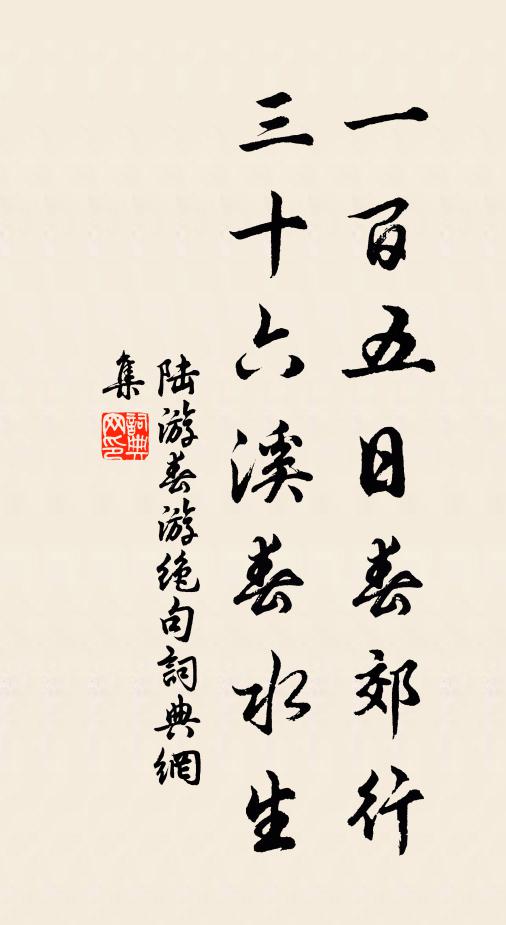 一百五日春郊行
三十六溪春水生
陆游春游绝句詞典網
集
詞典
网印